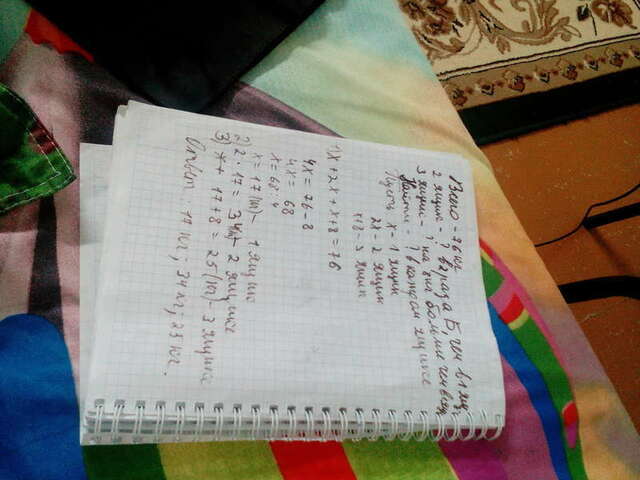 Всего - 76 кг
2 ящик - ? в 2 раза Б, чем в 1 ящ
3 ящик - ? на 8 кг больше чем в 1 ящ
Найти - ? в каждом ящике
Пусть x - 1 ящик
2x - 2 ящик
x+8 - 3 ящик
1) x + 2x + x + 8 = 76
4x = 76 - 8
4x = 68
x = 68 : 4
x = 17 (кг) - 1 ящик
2) 2 · 17 = 34 (кг) 2 ящике
3) 17 + 8 = 25 (кг) - 3 ящике
Ответ 17 кг; 34 кг; 25 кг.